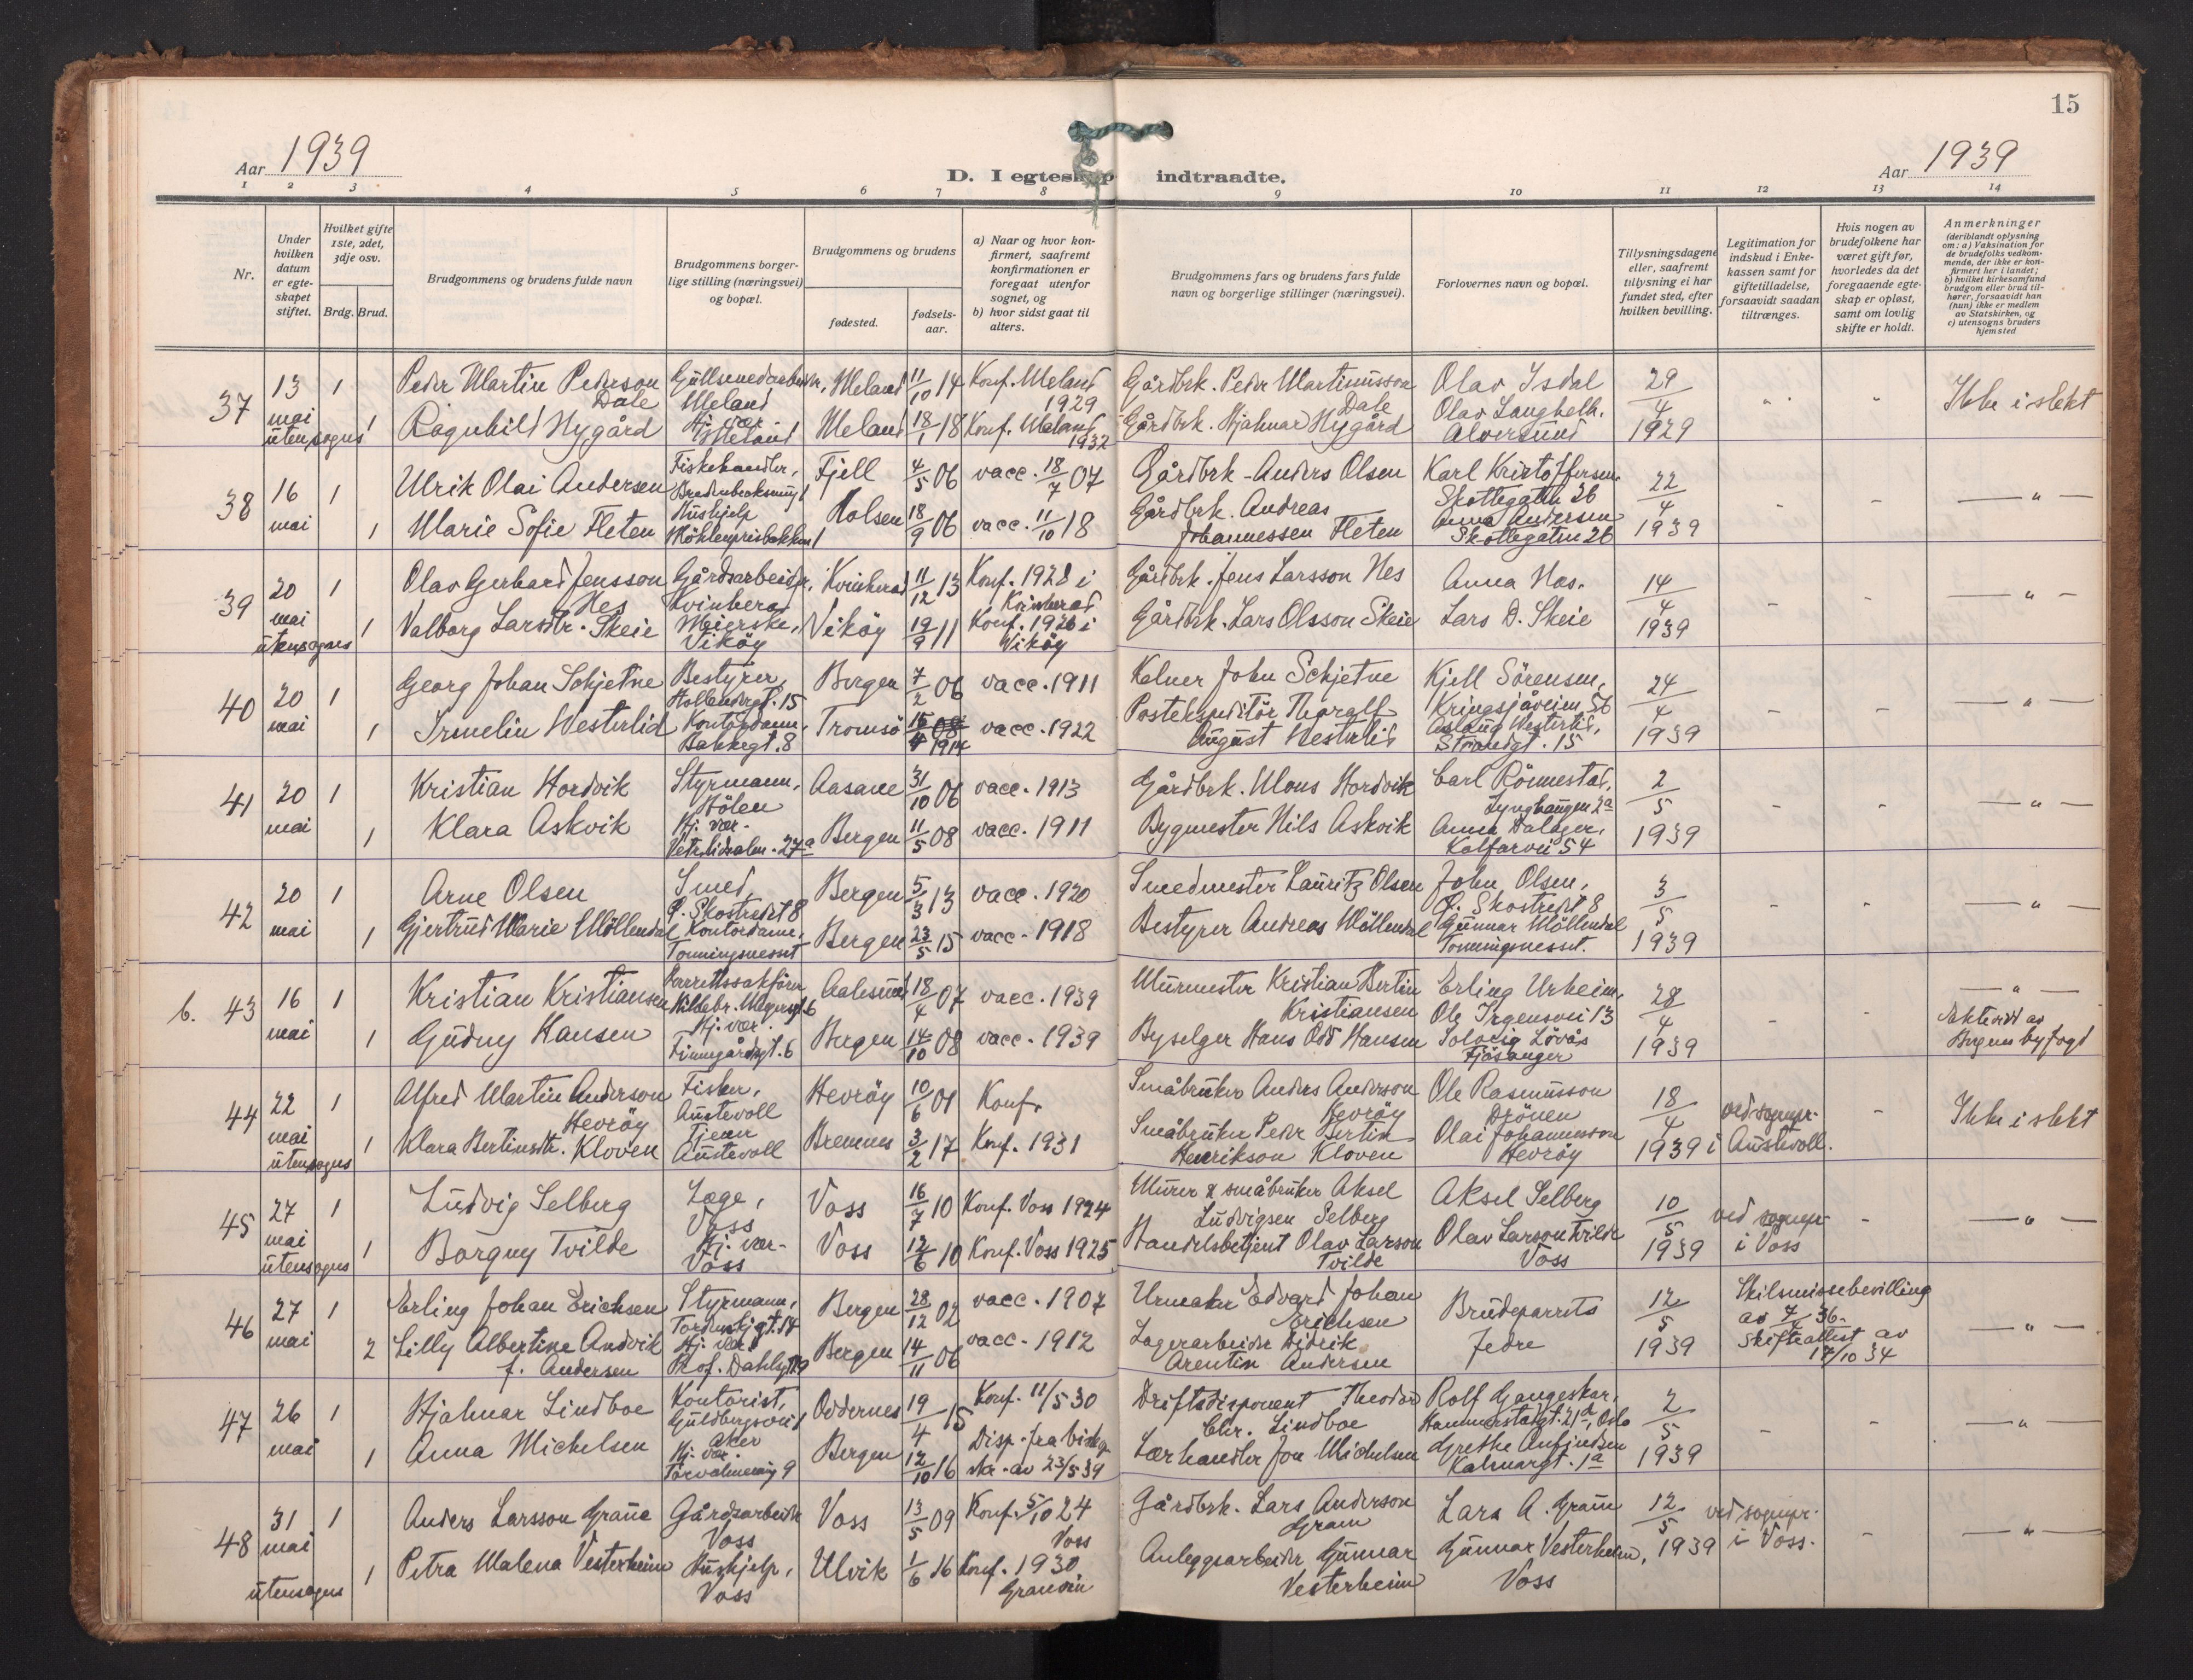 15
Aar 1939
D. I egteskap indtraadte.
Aar 1939
1 2 3 4 5 6 7 8 9 10 11 12 13 14
Nr.
Under hvilken datum er egteskapet stiftet.
Hvilket gifte 1ste, 2det, 3dje osv.
Brdg. Brud.
Brudgommens og brudens fulde navn
Brudgommens borgerlige stilling (næringsvei) og bopæl.
Brudgommens og brudens
fødested.
fødselsaar.
a) Naar og hvor konfirmert, saafremt konfirmationen er foregaat utenfor sognet, og
b) hvor sidst gaat til alters.
Brudgommens fars og brudens fars fulde navn og borgerlige stillinger (næringsvei).
Forlovernes navn og bopæl.
Tillysningsdagene eller, saafremt tillysning ei har fundet sted, efter hvilken bevilling.
Legitimation for indskud i Enkekassen samt for giftetilladelse, forsaavidt saadan tiltrænges.
Hvis nogen av brudefolkene har været gift før, hvorledes da det foregaaende egteskap er opløst, samt om lovlig skifte er holdt.
Anmerkninger
(deriblandt oplysning om: a) Vaksination for de brudefolks vedkommende, der ikke er konfirmert her i landet;
b) hvilket kirkesamfund brudgom eller brud tilhører, forsaavidt han (hun) ikke er medlem av Statskirken, og
c) utensogns bruders hjemsted
37 13 mai utensogns 1 Peder Martin Pederson Dale Gullsmedarbeider, Meland Meland 11/10 14 Konf. Meland 1929 Gårdbrk. Peder Martinusson Dale Olav Isdal 29/4 1929 Ikke i slekt
1 Ragnhild Nygård Hj. vær. Meland Meland 18/1 18 Konf. Meland 1932 Gårdbrk. Hjalmar Nygård Olav Langhell. Alversund
38 16 mai 1 Ulrik Olai Andersen Fiskehandler, Fjell 4/5 06 vacc. 18/7 07 Gårdbrk - Anders Olsen Karl Kristoffersen Skottegaten 26 22/4 1939 - - — " —
1 Marie Sofie Fleten Hushjelp Möhlenprisbakken 1 Holsen 18/9 06 vacc. 11/10 18 Gårdbrk. Andreas Johannessen Fleten Anna Andersen Skottegaten 26
39 20 mai utensogns 1 Olav Gerhard Jensson Nes Gårdsarbeider, Kvinherad Kvinherad 11/12 13 Konf. 1928 i Kvinherad Gårdbrk. Jens Larsson Nes Anna Nes. 14/4 1939 - - — " —
1 Valborg Larsdtr. Skeie Meierske, Vikøy Vikøy 19/9 11 Konf. 1926 i Vikøy Gårdbrk. Lars Olsson Skeie Lars D. Skeie
40 20 mai 1 Georg Johan Schjetne Bestyrer, Hollendergt. 15 Bergen 7/2 06 vacc. 1911 Kelner John Schjetne Kjell Sörensen, Kringsjåveien 56 24/4 1939 - - — " —
1 Irmelin Westerlid Kontordame, Bakkegt. 8 Tromsö 15/4 08 1914 vacc. 1922 Postekspeditör Thoralf August Westerlid Aslaug Westerlid, Strandgt. 15
41 20 mai 1 Kristian Hordvik Styrmann, Hölen Aasane 31/10 06 vacc. 1913 Gårdbrk. Mons Hordvik Carl Rönnestad, Lynghaugen 2a 2/5 1939 - - — " —
1 Klara Askvik Hj. vær. Vetrlidsalm. 27a Bergen 11/5 08 vacc. 1911 Bygmester Nils Askvik Anna Dalager, Kalfarvei 54
42 20 mai 1 Arne Olsen Smed, Ø. Skostredet 8 Bergen 5/3 13 vacc. 1920 Smedmester Lauritz Olsen John Olsen, Ø. Skostredet 8 3/5 1939 - - — " —
1 Gjertrud Marie Möllendal Kontordame, Tonningsneset Bergen 23/5 15 vacc. 1918 Bestyrer Andreas Möllendal Gunnar Möllendal Tonningsneset.
b. 43 16 mai 1 Kristian Kristiansen Overrettssakförer Hildebr. Meyersgt. 6 Aalesund 18/4 07 vacc. 1939 Murmester Kristian Bertin Kristiansen Erling Urheim, Ole Irgensvei 13 28/4 1939 - - — " —
1 Gudny Hansen Hj. vær. Finnegårdsgt. 6 Bergen 14/10 08 vacc. 1939 Byselger Hans Odd Hansen Solveig Lövås Fjösanger Ektevidd av Bergens byfogd
44 22 mai utensogns 1 Alfred Martin Anderson Hevröy Fisker, Austevoll Hevröy 10/6 01 Konf. Småbruker Anders Anderson Hevröy Ole Rasmusson Drönen 18/4 1939 ved sognepr. i Austevoll. - Ikke i slekt
1 Klara Bertinsdtr. Kloven Tjener Austevoll Bremnes 3/2 17 Konf. 1931 Småbruker Peder Bertin Henrikson Kloven Olai Johannesson Hevröy
45 27 mai utensogns 1 Ludvig Selberg Læge, Voss Voss 16/7 10 Konf. Voss 1924 Murer & småbruker Aksel Ludvigsen Selberg Aksel Selberg 10/5 1939 ved sognepr. i Voss - — " —
1 Borgny Tvilde Hj. vær. Voss Voss 12/6 10 Konf. Voss 1925 Handelsbetjent Olav Larson Tvilde Olav Larson Tvilde Voss
46 27 mai 1 Erling Johan Erichsen Styrmann, Tordenskjgt. 14 Bergen 28/12 02 vacc. 1907 Urmaker Edvard Johan Erichsen Brudeparrets fedre 12/5 1939 Skilsmissebevilling av 7/4 36. Skifteattest av 17/10 34 — " —
2 Lilly Albertine Andvik f. Andersen Hj. vær. Prof. Dahlsgt. 19 Bergen 14/11 06 vacc. 1912 Lagerarbeider Didrik Arentin Andersen
47 26 mai 1 Hjalmar Lindboe Kontorist, Guldbergsvei 1 Aker Oddernes 19/4 15 Konf. 11/5 30 Driftsdisponent Theodor Chr. Lindboe Rolf Gangeskar, Hammerstadgt. 21d, Oslo 2/5 1939 - - — " —
1 Anna Michelsen Hj. vær. Torvalmenning 9 Bergen 12/10 16 Disp. fra biskop skr. av 23/5 39 Lærhandler Jon Michelsen Grethe Anfindsen Kalmargt. 1a
48 31 mai utensogns 1 Anders Larsson Graue Gårdsarbeider Voss Voss 13/5 09 Konf. 5/10 24 Voss Gårdbrk. Lars Anderson Graue Lars A. Graue 12/5 1939 ved sognepr. i Voss. - — " —
1 Petra Malena Vesterheim Hushjelp, Voss Ulvik 1/6 16 Konf. 1930 Granvin Anleggsarbeider Gunnar Vesterheim Gunnar Vesterheim, Voss